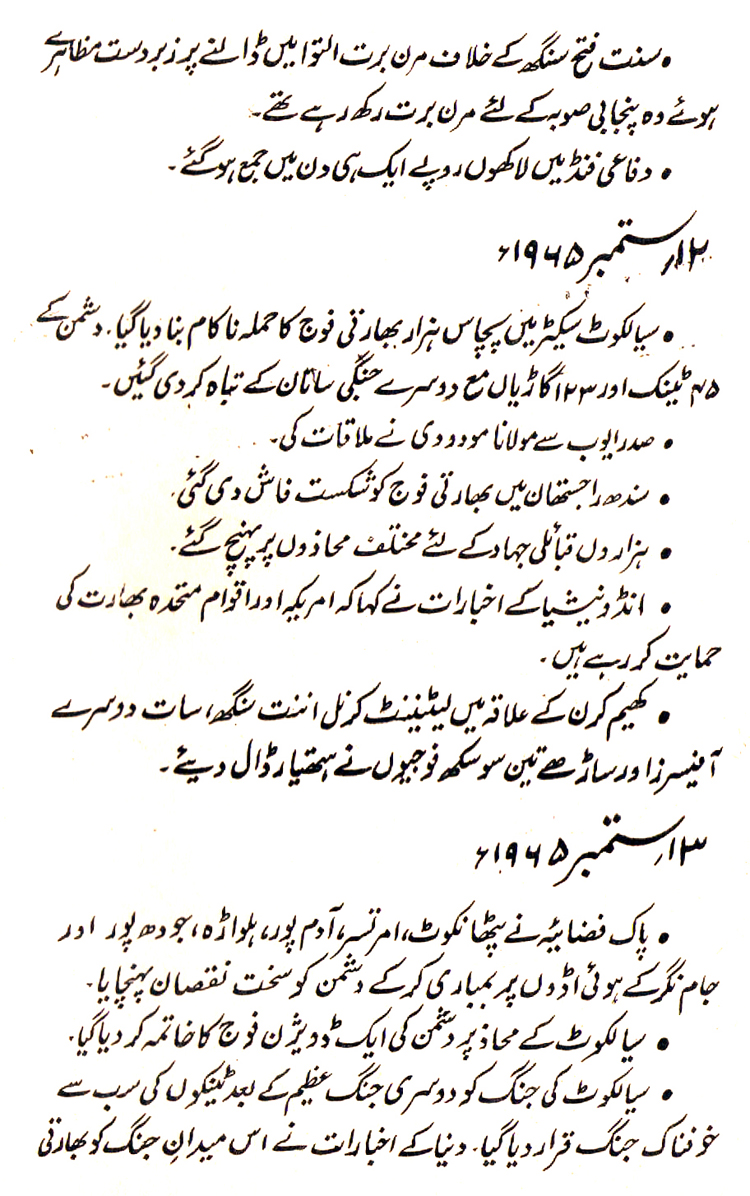 • سنت فتح سنگھ کے خلاف مرن برت التوا میں ڈالنے پر زبردست مظاہرے
ہوئے وہ پنجابی صوبہ کے لئے مرن برت رکھ رہے تھے۔
• دفاعی فنڈ میں لاکھوں روپے ایک ہی دن میں جمع ہوگئے۔
۱۲ر ستمبر ۱۹۶۵ء
• سیالکوٹ سیکٹر میں پچاس ہزار بھارتی فوج کا حملہ ناکام بنا دیا گیا۔ دشمن کے
۴۵ ٹینک اور ۱۲۳ گاڑیاں مع دوسرے جنگی سامان کے تباہ کر دی گئیں۔
• صدر ایوب سے مولانا مودودی نے ملاقات کی۔
• سندھ راجستھان میں بھارتی فوج کو شکست فاش دی گئی۔
• ہزاروں قبائلی جہاد کے لئے مختلف محاذوں پر پہنچ گئے۔
• انڈونیشیا کے اخبارات نے کہا کہ امریکہ اور اقوام متحدہ بھارت کی
حمایت کر رہے ہیں۔
• کھیم کرن کے علاقہ میں لیفٹیننٹ کرنل اننت سنگھ، سات دوسرے
آفیسرز اور ساڑھے تین سو سکھ فوجیوں نے ہتھیار ڈال دیئے۔
۱۳ر ستمبر ۱۹۶۵ء
• پاک فضائیہ نے پٹھانکوٹ، امرتسر، آدم پور، ہلواڑہ، جودھ پور اور
جام نگر کے ہوئی اڈوں پر بمباری کر کے دشمن کو سخت نقصان پہنچایا۔
• سیالکوٹ کے محاذ پر دشمن کی ایک ڈویژن فوج کا خاتمہ کر دیا گیا۔
• سیالکوٹ کی جنگ کو دوسری جنگ عظیم کے بعد ٹینکوں کی سب سے
خوفناک جنگ قرار دیا گیا۔ دنیا کے اخبارات نے اس میدان جنگ کو بھارتی